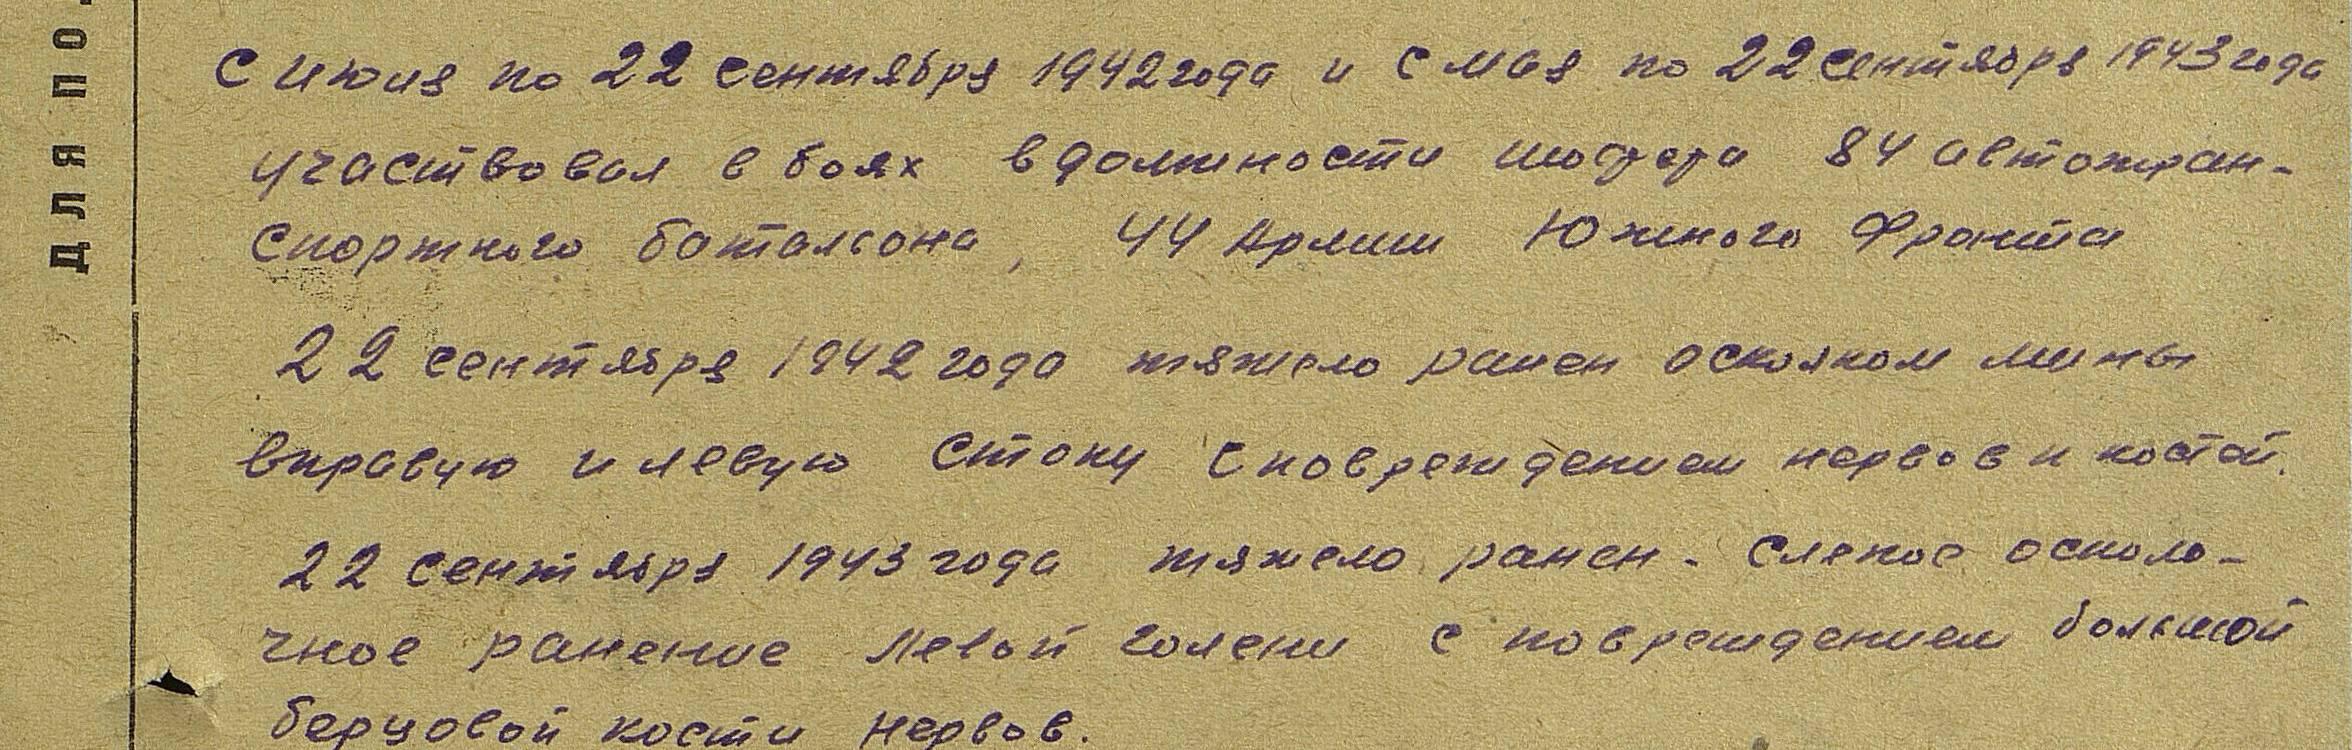 ДЛЯ ПО
С июня по 22 сентября 1942 года и с мая по 22 сентября 1943 года
участвовал в боях в должности шофера 84 автотран-
спортного баталиона, 44 Армии Южного Фронта
22 сентября 1942 года тяжело ранен осколком мины
в правую и левую стопу с повреждением нервов и костей.
22 сентября 1943 года тяжело ранен - слепое осколо-
чное ранение левой голени с повреждением большой
берцовой кости нервов.